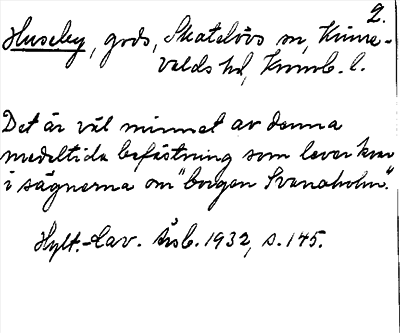 2.
Huseby, gods, Skatelövs sn, Kinne-
valds hd, Kronob. l.
Det är väl minnet av denna
medeltida befästning som lever kvar
i sägnerna om "borgen Svanaholm".
Hylt.-Cav. Årsb. 1932, s. 145.